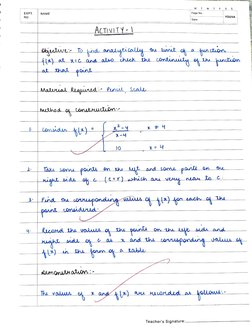 EXPT. NO.
NAME
M T W T F S S
Page No.:
Date:
YOUVA
ACTIVITY - 1
Objective:- To find analytically the limit of a function
f(x) at x=c and also check the continuity of the function
at that point
Material Required:- Pencil, Scale
Method of Construction:-
1. Consider f(x) = { x²-4 / x-4 , x ≠ 4
10 , x = 4
2. Take some points on the left and some points on the
right side of c (c=4) which are very near to c.
3. Find the corresponding values of f(x) for each of the
point considered
4. Record the values of the points on the left side and
right side of c as x and the corresponding values of
f(x) in the form of a table
Demonstration:-
The values of x and f(x) are recorded as follows:-
Teacher's Signature